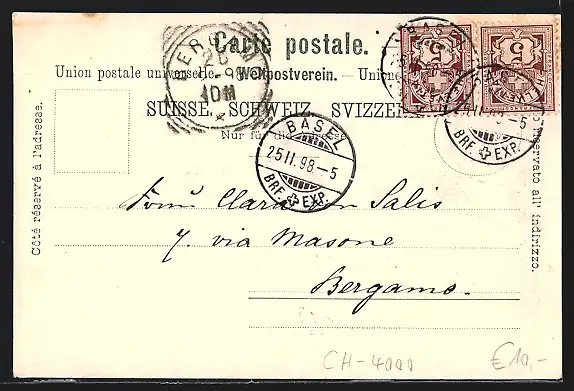 Carte postale.
Union postale universelle. — Weltpostverein. — Unione
SUISSE. SCHWEIZ. SVIZZERA.
Nur für die Adresse.
Côté réservé à l'adresse.
riservato all' indirizzo.
BERGAMO
10M
BASEL
25 II 98-5
BRF. EXP.
BASEL
II 98-5
BRF. EXP.
5
5
HELVETIA
Clara von Salis
7. via Masone
Bergamo.
CH-4000
€10,-